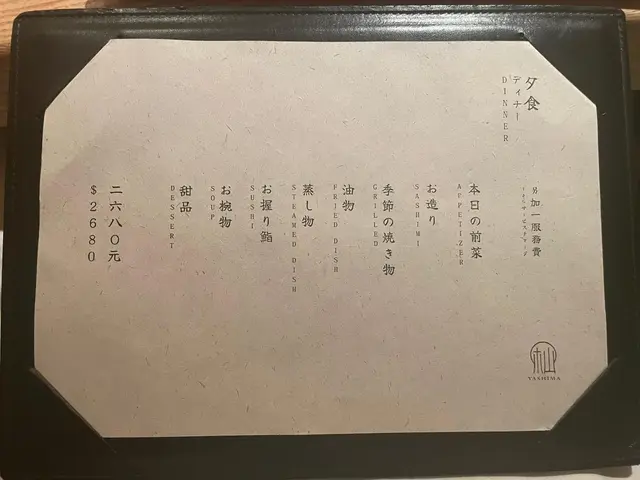 夕食
ディナー
DINNER
另加一服務費
本日の前菜
APPETIZER
お造り
SASHIMI
季節の焼き物
GRILLED
油物
FRIED DISH
蒸し物
STEAMED DISH
お握り鮨
SUSHI
お椀物
SOUP
甜品
DESSERT
二六八〇元
$2680
YASHIMA